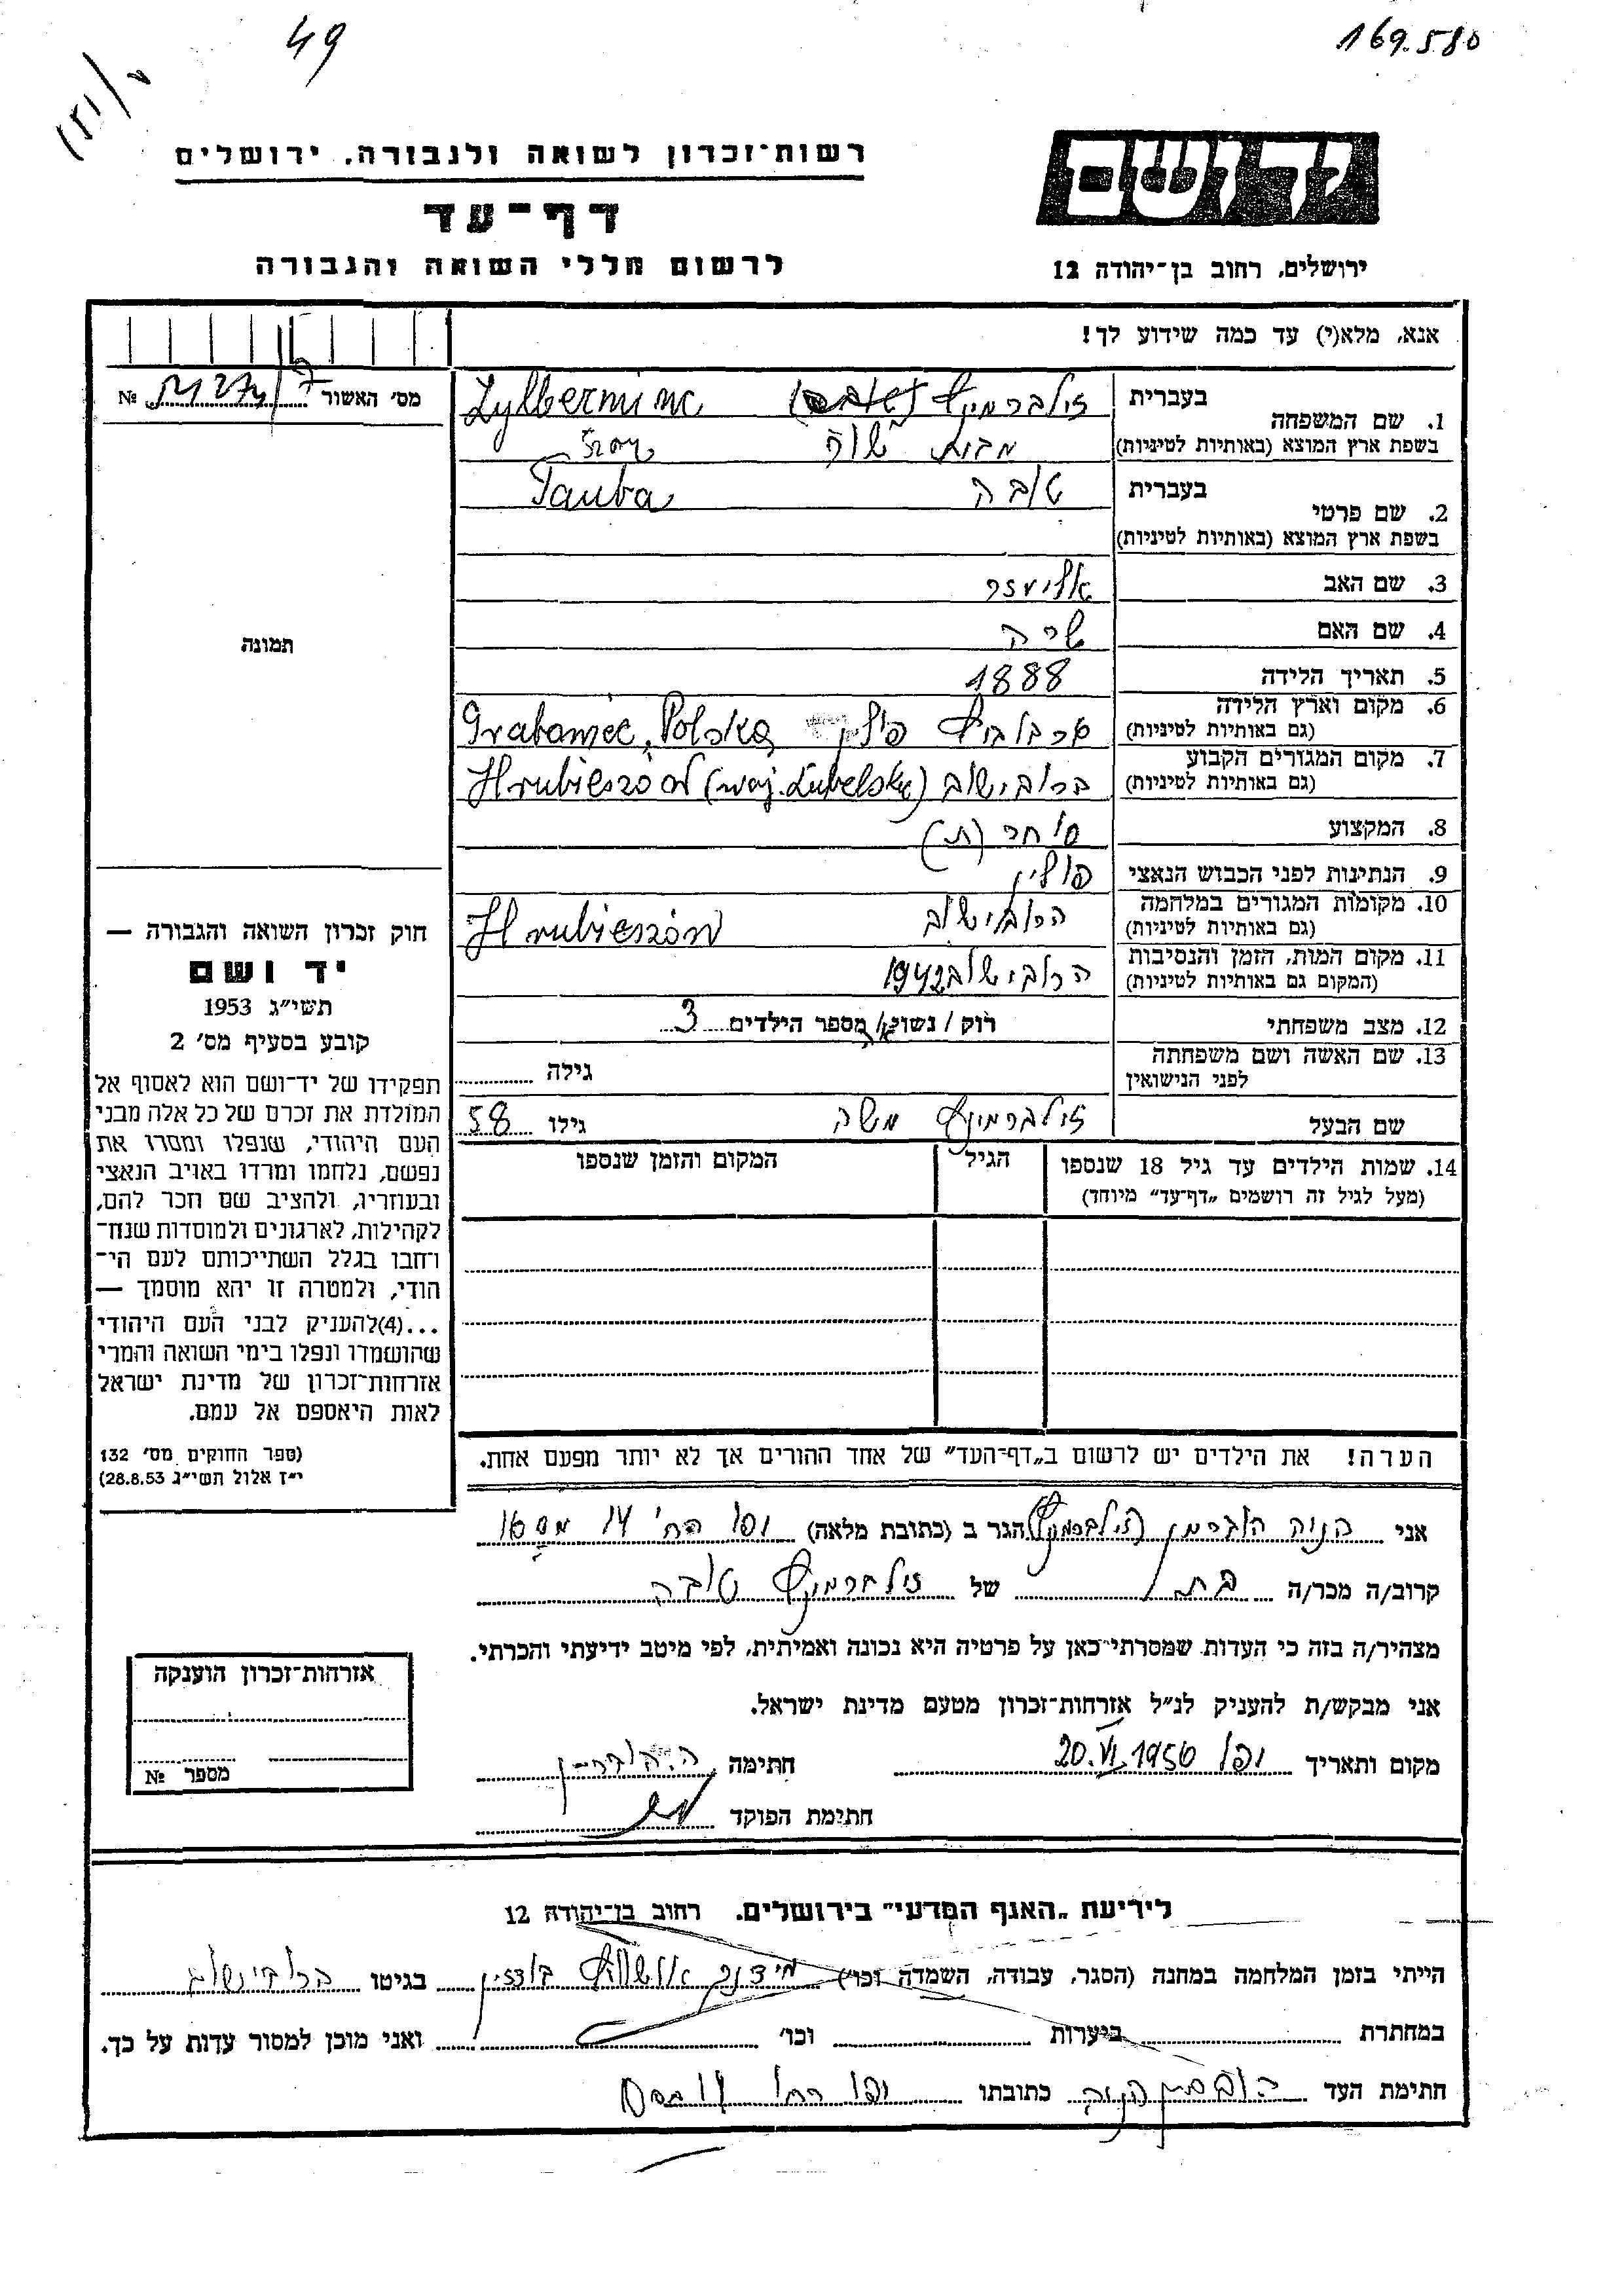 49
169.580
רשות־זכרון לשואה ולגבורה. ירושלים
יד ושם
דף־עד
לרשום חללי השואה והגבורה
ירושלים, רחוב בן־יהודה 12
אנא, מלא(י) עד כמה שידוע לך!
מס' האשור №
1. שם המשפחה בעברית זילברמינץ Zylberminc
בשפת ארץ המוצא (באותיות לטיניות) מבית
2. שם פרטי בעברית טובה Tauba
בשפת ארץ המוצא (באותיות לטיניות)
3. שם האב אליעזר
4. שם האם שרה
5. תאריך הלידה 1888
6. מקום וארץ הלידה
(גם באותיות לטיניות) פולין Grabowiec, Polska
7. מקום המגורים הקבוע
(גם באותיות לטיניות) הרובישוב Hrubieszów (woj. Lubelskie)
8. המקצוע סוחר (ת)
9. הנתינות לפני הכבוש הנאצי פולין
10. מקומות המגורים במלחמה
(גם באותיות לטיניות) הרובישוב Hrubieszów
11. מקום המות, הזמן והנסיבות
(המקום גם באותיות לטיניות) הרובישוב 1942
12. מצב משפחתי רוק / נשוי/אה מספר הילדים 3
13. שם האשה ושם משפחתה
לפני הנישואין גילה
שם הבעל זילברמינץ משה גילו 58
14. שמות הילדים עד גיל 18 שנספו
(מעל לגיל זה רושמים „דף־עד" מיוחד)
הגיל
המקום והזמן שנספו
הערה! את הילדים יש לרשום ב„דף־העד" של אחד ההורים אך לא יותר מפעם אחת.
תמונה
חוק זכרון השואה והגבורה —
יד ושם
תשי"ג 1953
קובע בסעיף מס' 2
תפקידו של יד־ושם הוא לאסוף אל
המולדת את זכרם של כל אלה מבני
העם היהודי, שנפלו ומסרו את
נפשם, נלחמו ומרדו באויב הנאצי
ובעוזריו, ולהציב שם וזכר להם,
לקהילות, לארגונים ולמוסדות שנח־
רחבו בגלל השתייכותם לעם הי־
הודי, ולמטרה זו יהא מוסמך —
...(4)להעניק לבני העם היהודי
שהושמדו ונפלו בימי השואה והמרי
אזרחות־זכרון של מדינת ישראל
לאות היאספם אל עמם.
(ספר החוקים מס' 132
י"ז אלול תשי"ג 28.8.53)
אני הניה הוברמן (זילברמינץ) הגר ב (כתובת מלאה) יפו רח' 14
קרוב/ה מכר/ה בת של זילברמינץ טובה
מצהיר/ה בזה כי העדות שמסרתי כאן על פרטיה היא נכונה ואמיתית, לפי מיטב ידיעתי והכרתי.
אני מבקש/ת להעניק לנ"ל אזרחות־זכרון מטעם מדינת ישראל.
מקום ותאריך יפו 20.VI.1956 חתימה ה. הוברמן
חתימת הפוקד
אזרחות־זכרון הוענקה
מספר №
לידיעת „האגף המדעי" בירושלים. רחוב בן־יהודה 12
הייתי בזמן המלחמה במחנה (הסגר, עבודה, השמדה וכו') מידנק אושוויץ בודזין בגיטו הרובישוב
במחתרת ביערות וכו' ואני מוכן למסור עדות על כך.
חתימת העד הוברמן הניה כתובתו יפו רח'